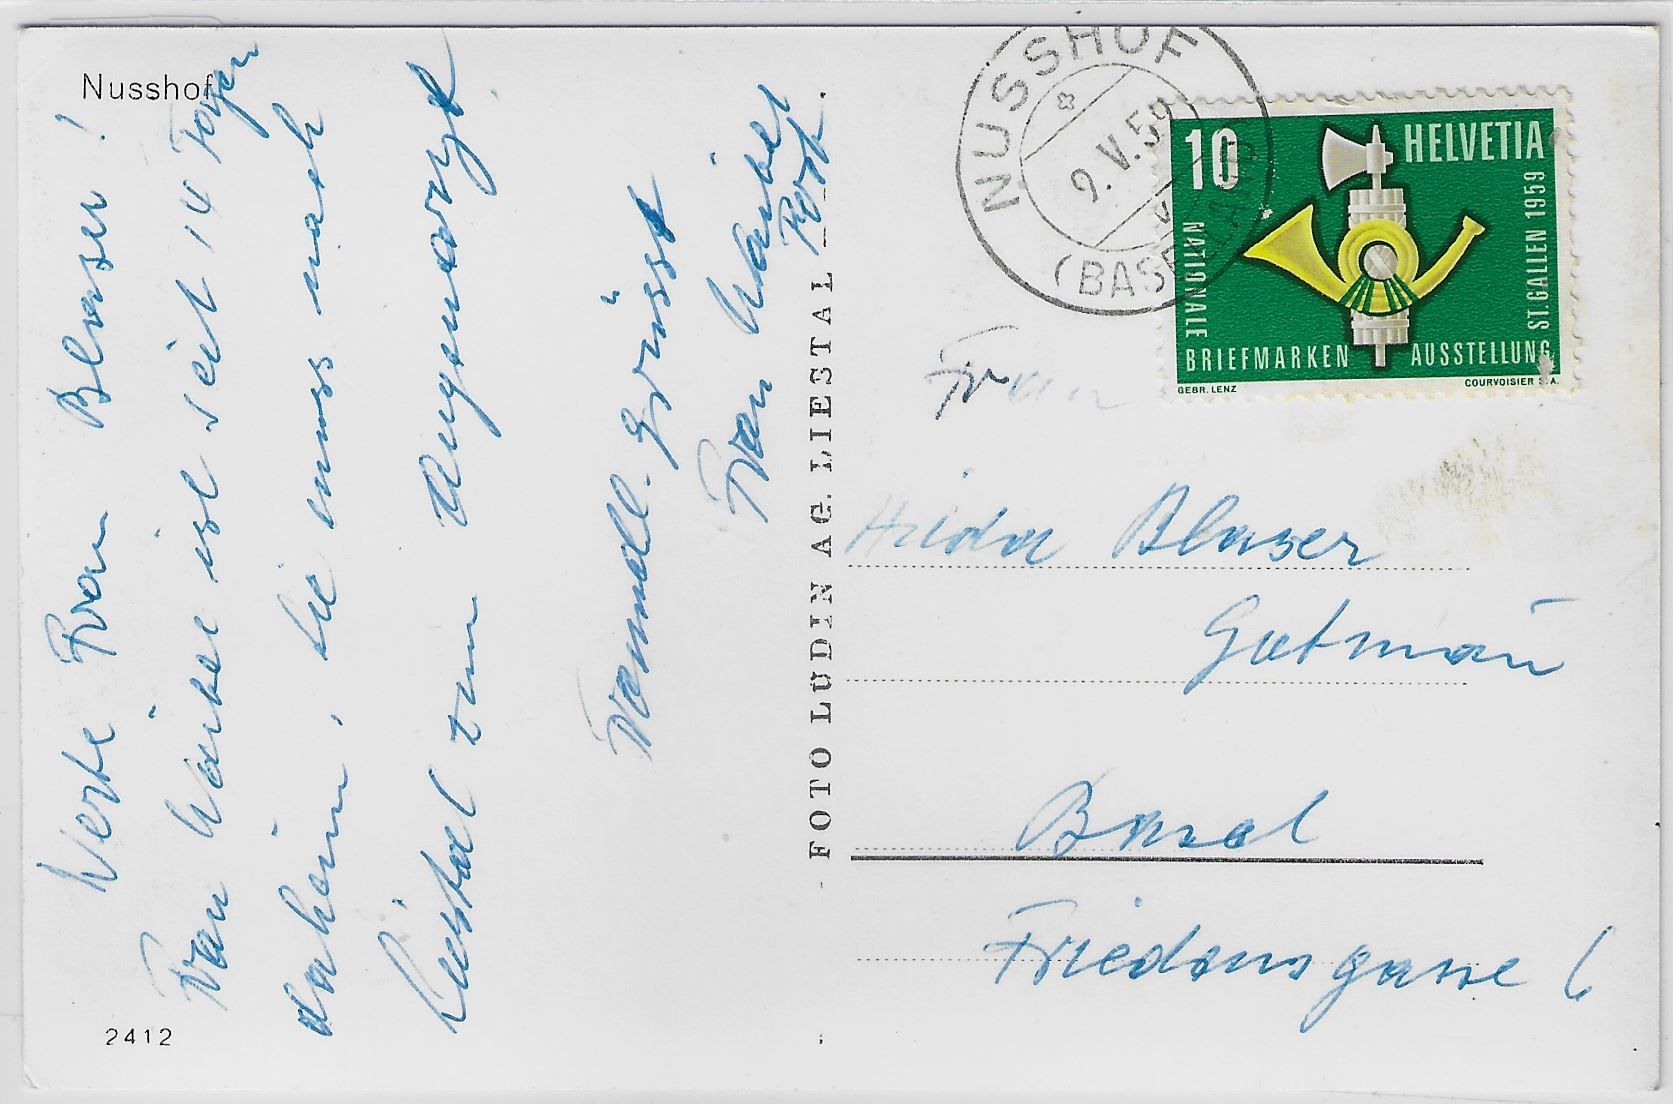 Nusshof
Werte Frau Blaser!
Frau ist seit 14 Tagen
daheim, sie muss nach
Liestal zum Augenarzt.
Freundl. Grüsst
Frau
Post
2412
FOTO LUDIN AG. LIESTAL
NUSSHOF
9.V.59
(BASELLAND)
10
HELVETIA
NATIONALE
BRIEFMARKEN AUSSTELLUNG
ST.GALLEN 1959
GEBR. LENZ
COURVOISIER S.A.
Frau
Hilda Blaser
Gutmañ
Basel
Friedensgasse 6